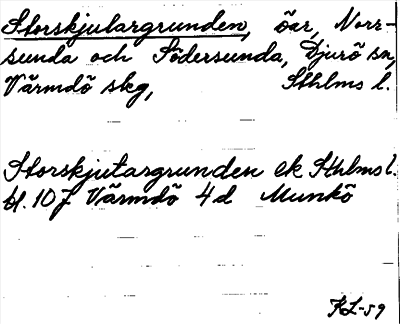 Storskjutargrunden, öar, Norr-
sunda och Södersunda, Djurö sn,
Värmdö skg, Sthlms l.
Storskjutargrunden ek Sthlms l.
bl. 107 Värmdö 4d Munkö
KL-59